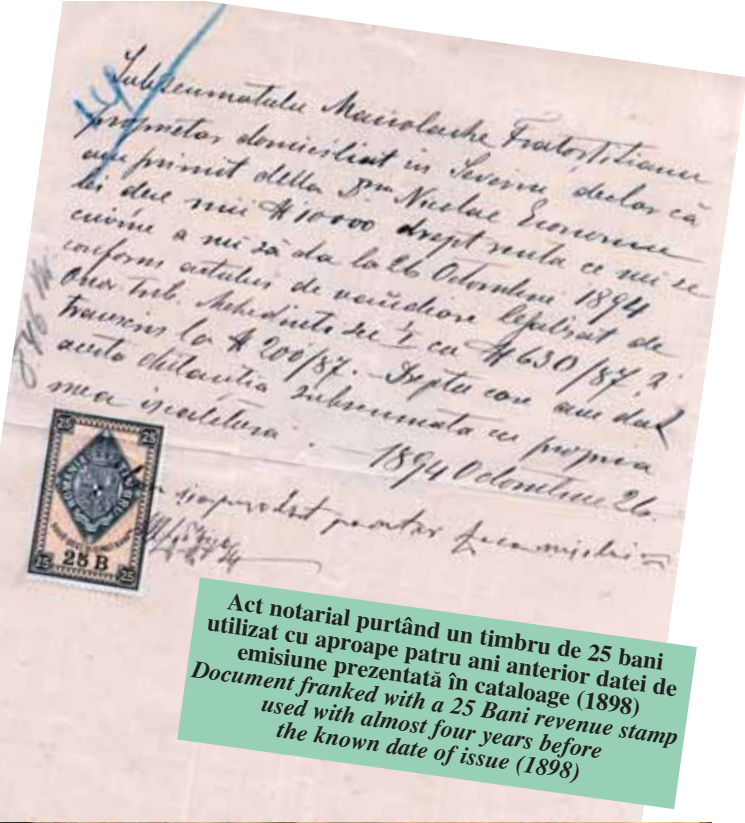 Subsemnatulu Manolache
propietar domiciliat in Severin declar că
am primit della Nicolae Economu
lei dece mii # 10000 drept renta ce mi se
cuvine a mi să da la 26 Octombrie 1894
conform actului de legalisat de
Onor. Trib. Mehedinti cu # 630/87
transcris la # 200/87. – Drept care am dat
acesta chitantia subsemnata cu propria
mea iscalitura. – 1894 Octombrie 26.
25 25
ROMANIA TIMBRU
25 B
25 25
Act notarial purtând un timbru de 25 bani
utilizat cu aproape patru ani anterior datei de
emisiune prezentată în cataloage (1898)
Document franked with a 25 Bani revenue stamp
used with almost four years before
the known date of issue (1898)